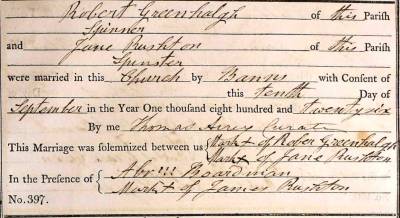 Robert Greenhalgh of this Parish
Spinner
and Jane Rushton of this Parish
Spinster
were married in this Church by Banns with Consent of
this tenth Day of
September in the Year One thousand eight hundred and twenty six
By me Thomas Airey Curate
This Marriage was solemnized between us Mark + of Robert Greenhalgh
Mark + of Jane Rushton
In the Presence of Abr Boardman
Mark + of James Rushton
No. 397.